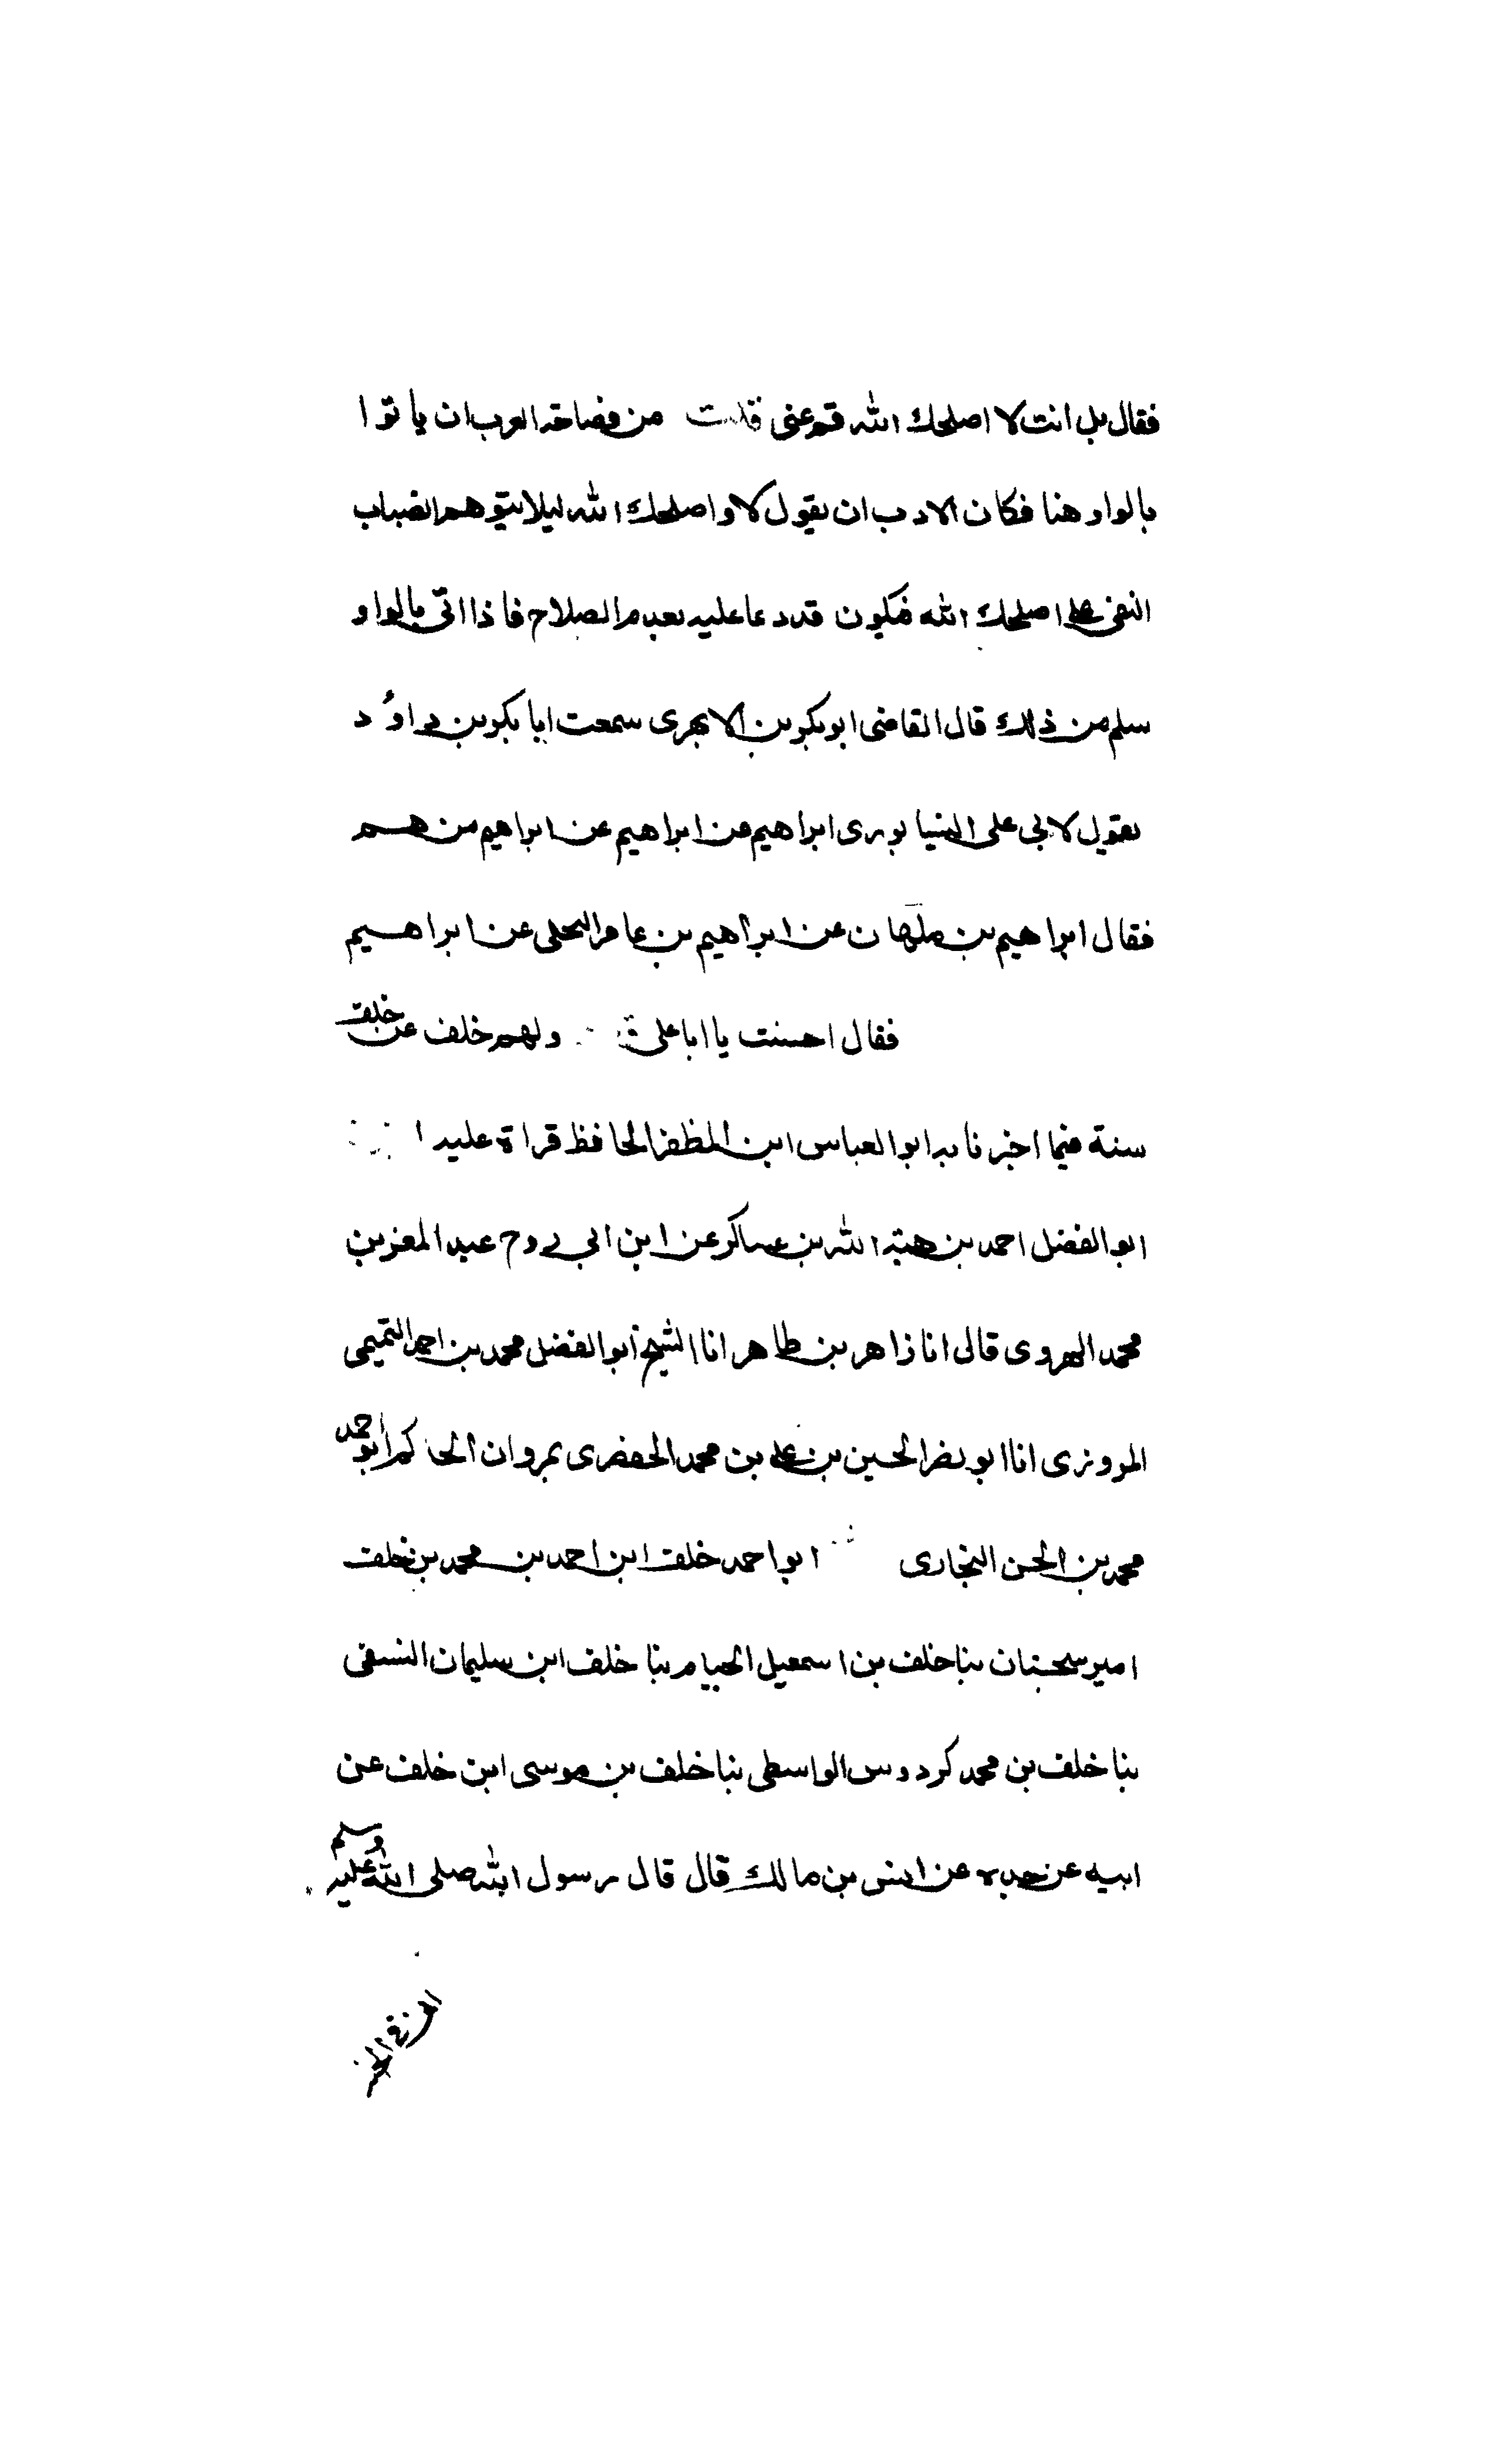 فقال بل انت لا اصلحك الله قم عنى قلت من فصاحة العرب ان ياتوا
بالواو هنا فكان الادب ان يقول لا واصلحك الله ليلا يتوهم انصباب
النفى على اصلحك الله فيكون قد دعا عليه بعدم الصلاح فاذا اتى بالواو
سلم من ذلك قال القاضى ابو بكر بن الابهرى سمعت ابا بكر بن داؤد
يقول لابى على النيسابورى ابراهيم عن ابراهيم عن ابراهيم من هم
فقال ابراهيم بن طهمان عن ابراهيم بن عامر البجلى عن ابراهيم
فقال احسنت يا ابا على ولهم خلف عن خلف
ستة فيما اخبرنا به ابو العباس ابن المظفر الحافظ قراة عليه ا
ابو الفضل احمد بن هبة الله بن عساكر عن ابن ابى روح عبد المعز بن
محمد الهروى قال انا زاهر بن طاهر انا الشيخ ابو الفضل محمد بن احمد التميمى
المروزى انا ابو نصر الحسين بن على بن محمد الحفصرى بمروان الحاكم ابو احمد
محمد بن الحسن البخارى ابو احمد خلف ابن احمد بن محمد بن خلف
امير سجستان بنا خلف بن اسمعيل الخيام بنا خلف ابن سليمان النسفى
بنا خلف بن محمد كردوس الواسطى بنا خلف بن موسى ابن خلف عن
ابيه عن جده عن انس بن مالك قال قال رسول الله صلى الله عليه وسلم